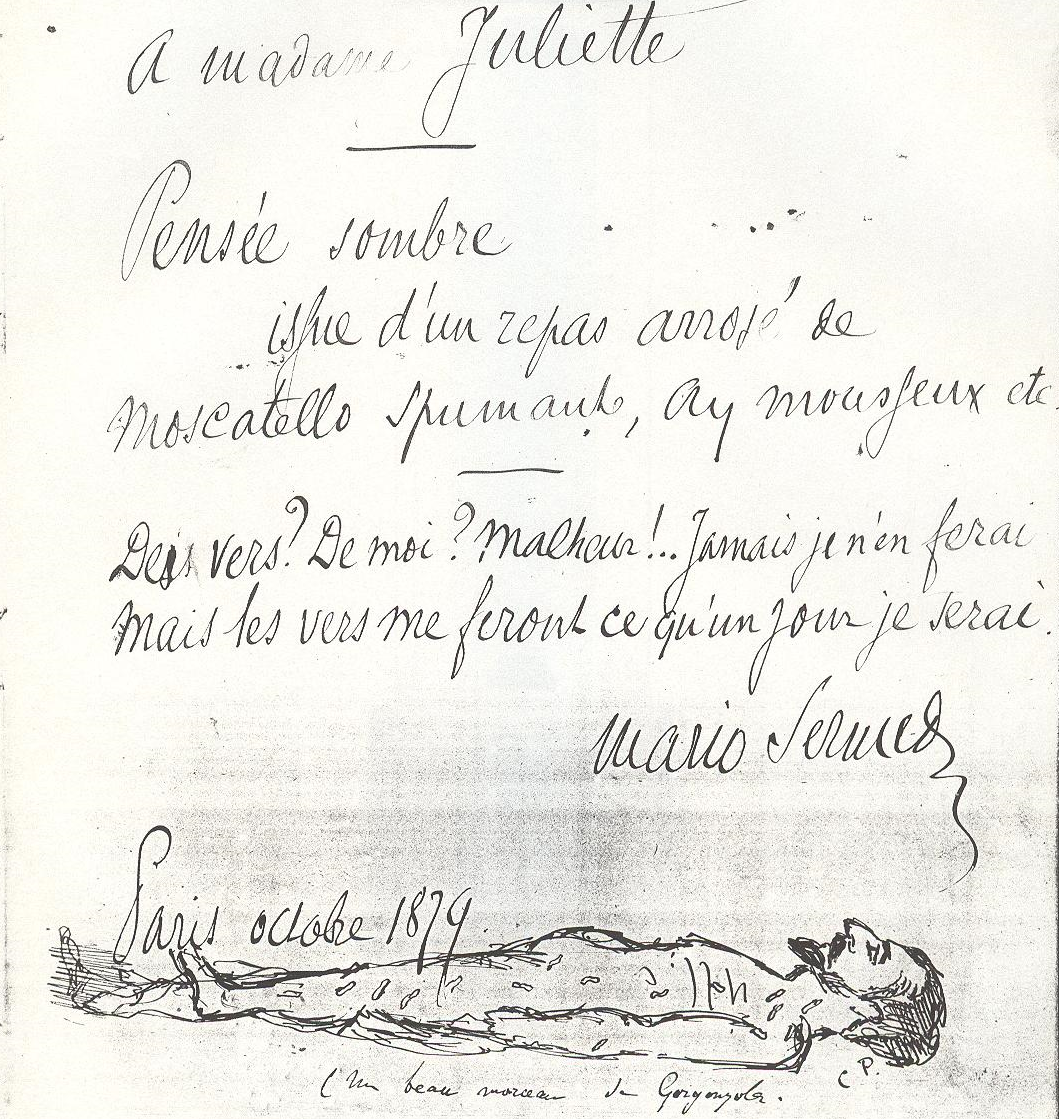 A madame Juliette
Pensée sombre
issue d'un repas arrosé de
Moscatello Spumante, Ay mousseux etc
Des vers? De moi? Malheur!.. Jamais je n'en ferai
Mais les vers me feront ce qu'un jour je serai.
Mario
Paris octobre 1879
C P.
(Un beau morceau de Gorgonzola.